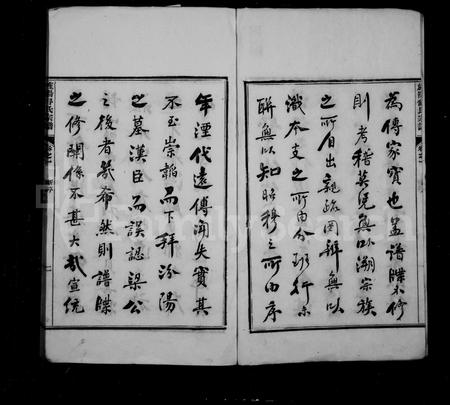 為傳家寶也蓋譜牒不修
則考稽莫凭無以溯宗族
之所自出親疏罔辨無以
識本支之所由分班行未
聯無以知昭穆之所由序
年湮代遠傳聞失實其
不至崇韜而下拜汾陽
之墓漢臣而誤認梁公
之後者幾希然則譜牒
之修關係不甚大哉宣統
FamilySearch